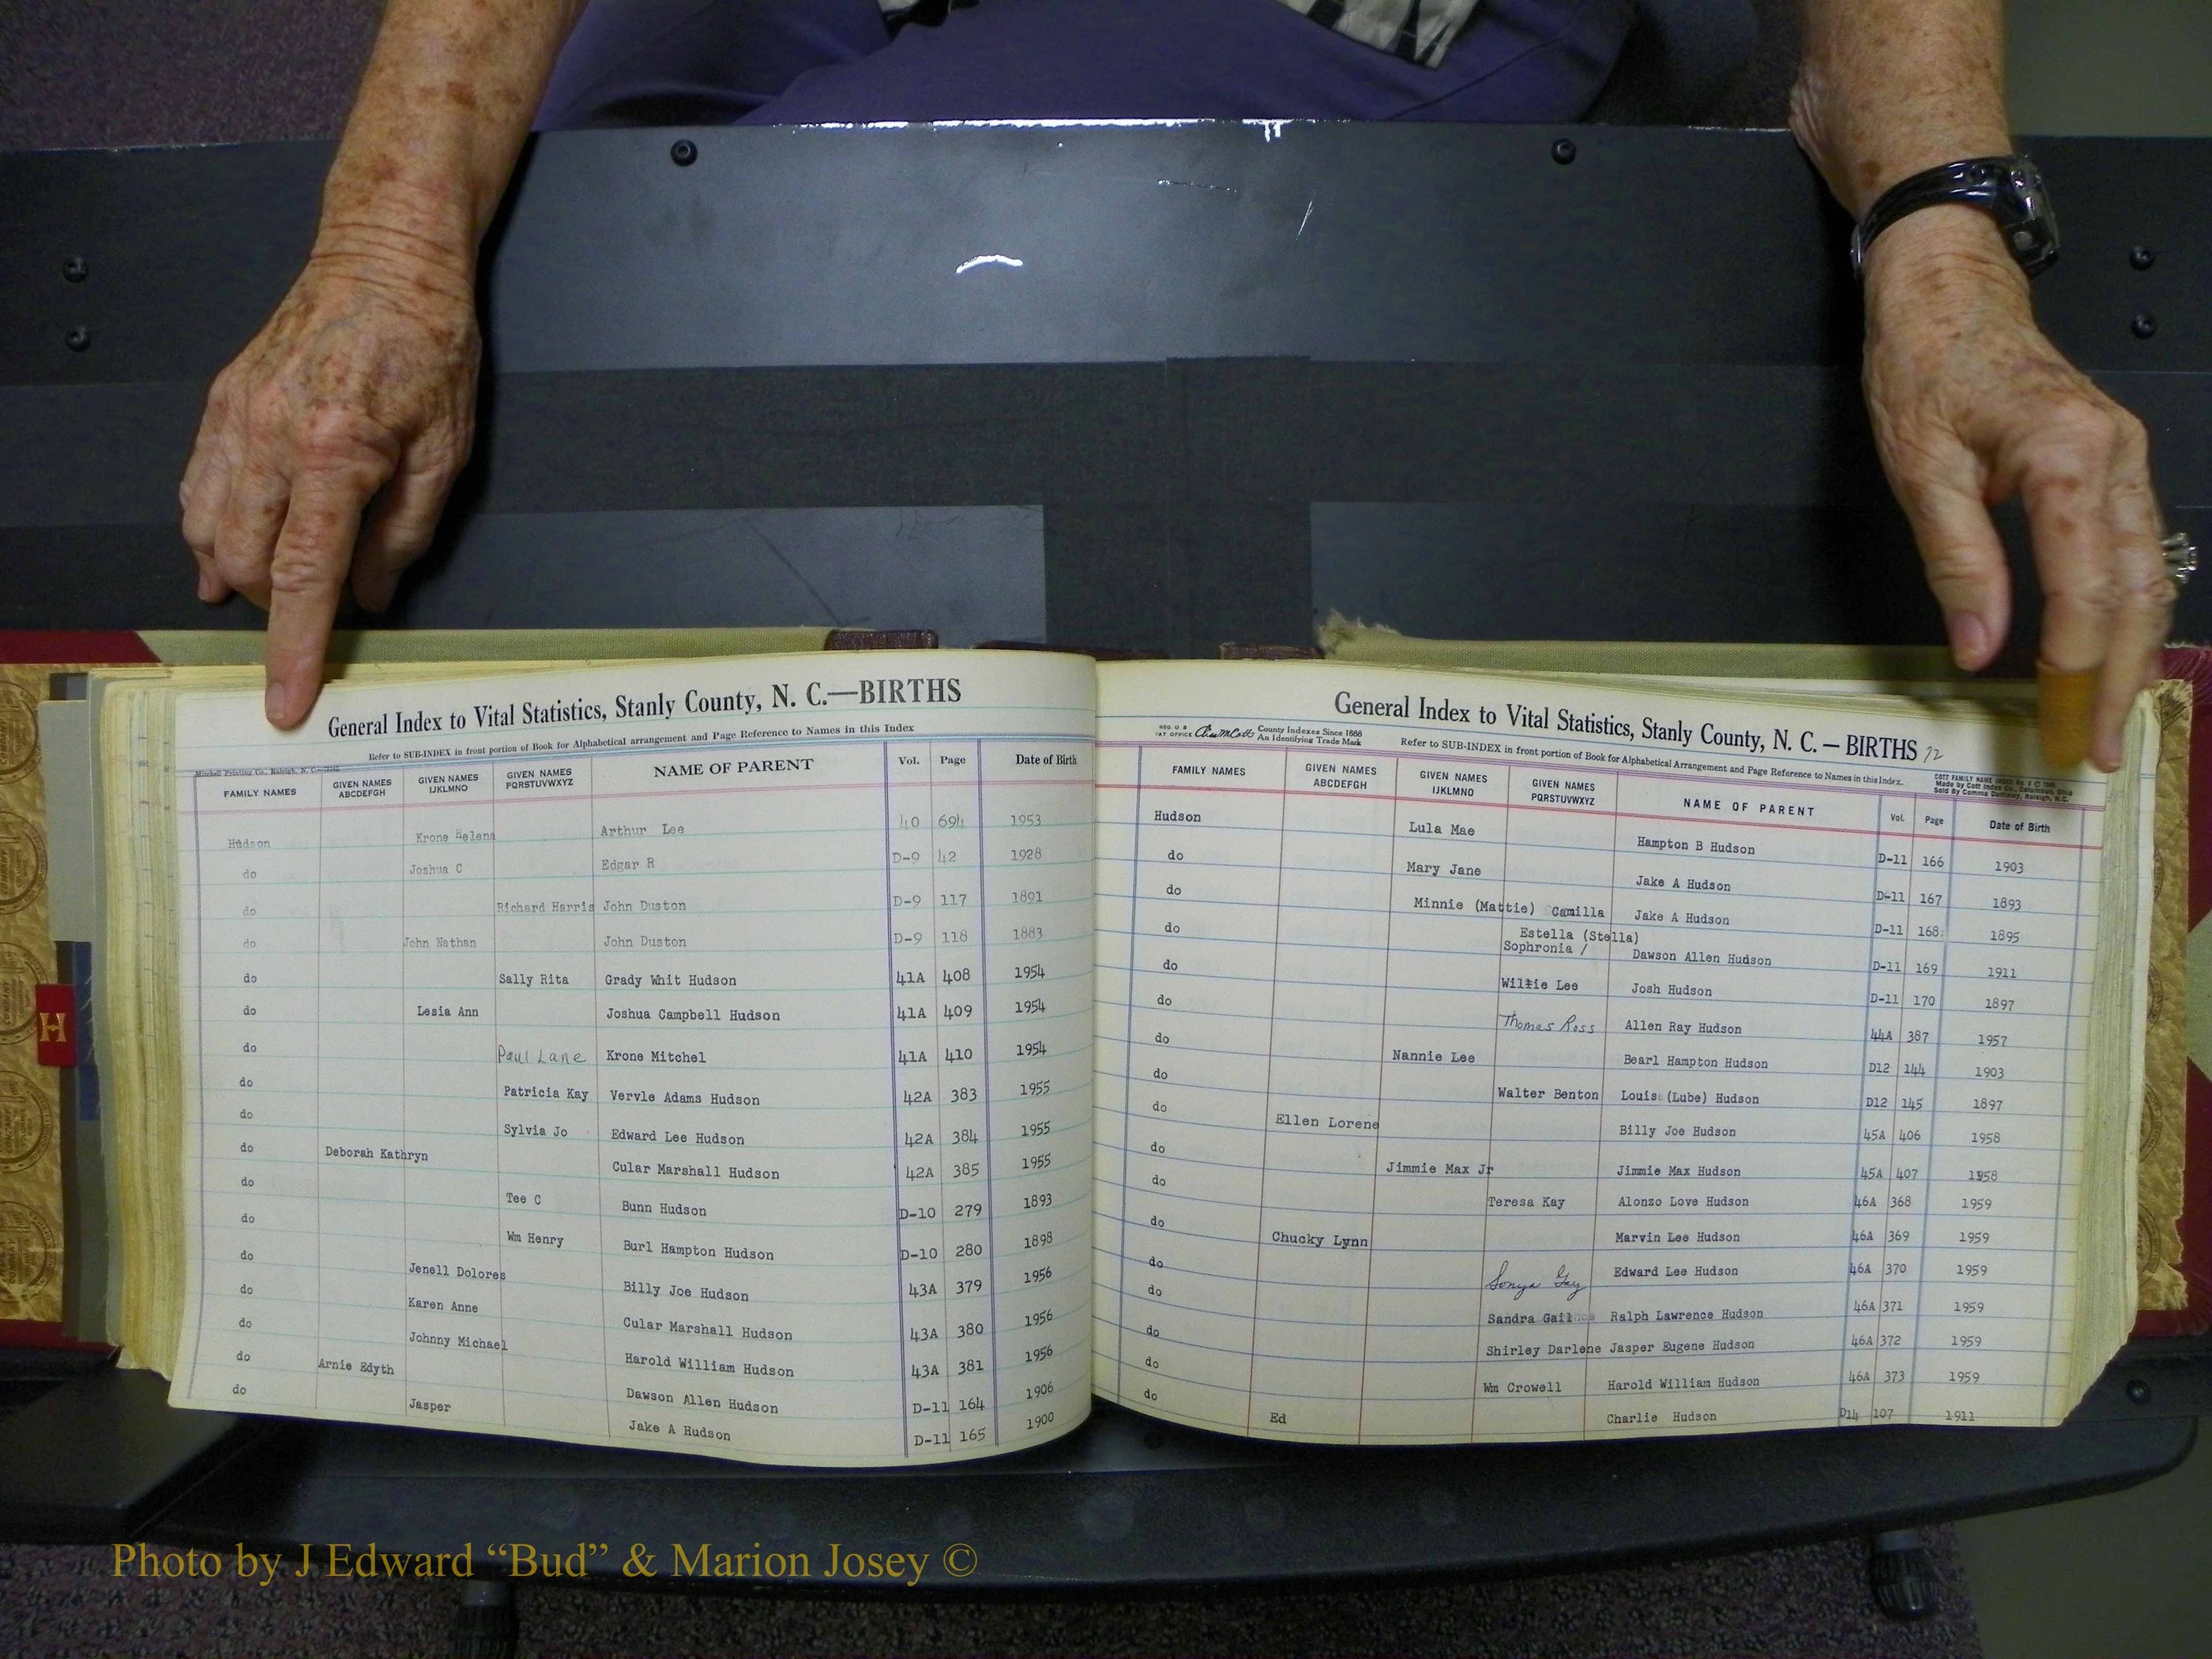 General Index to Vital Statistics, Stanly County, N. C.—BIRTHS
Refer to SUB-INDEX in front portion of Book for Alphabetical arrangement and Page Reference to Names in this Index
Mitchell Printing Co., Raleigh, N. C.
FAMILY NAMES GIVEN NAMES ABCDEFGH GIVEN NAMES IJKLMNO GIVEN NAMES PQRSTUVWXYZ NAME OF PARENT Vol. Page Date of Birth
Hudson Krone Helena Arthur Lee 40 694 1953
do Joshua C Edgar R D-9 42 1928
do Richard Harris John Duston D-9 117 1891
do John Nathan John Duston D-9 118 1883
do Sally Rita Grady Whit Hudson 41A 408 1954
do Lesia Ann Joshua Campbell Hudson 41A 409 1954
do Paul Lane Krone Mitchel 41A 410 1954
do Patricia Kay Vervle Adams Hudson 42A 383 1955
do Sylvia Jo Edward Lee Hudson 42A 384 1955
do Deborah Kathryn Cular Marshall Hudson 42A 385 1955
do Tee C Bunn Hudson D-10 279 1893
do Wm Henry Burl Hampton Hudson D-10 280 1898
do Jenell Dolores Billy Joe Hudson 43A 379 1956
do Karen Anne Cular Marshall Hudson 43A 380 1956
do Johnny Michael Harold William Hudson 43A 381 1956
do Arnie Edyth Dawson Allen Hudson D-11 164 1906
do Jasper Jake A Hudson D-11 165 1900
H
General Index to Vital Statistics, Stanly County, N. C. — BIRTHS 72
County Indexes Since 1888
An Identifying Trade Mark
Refer to SUB-INDEX in front portion of Book for Alphabetical Arrangement and Page Reference to Names in this Index.
Made by Cott Index Co., Columbus, Ohio
FAMILY NAMES GIVEN NAMES ABCDEFGH GIVEN NAMES IJKLMNO GIVEN NAMES PQRSTUVWXYZ NAME OF PARENT Vol. Page Date of Birth
Hudson Lula Mae Hampton B Hudson D-11 166 1903
do Mary Jane Jake A Hudson D-11 167 1893
do Minnie (Mattie) Camilla Jake A Hudson D-11 168 1895
do Estella (Stella) Sophronia / Dawson Allen Hudson D-11 169 1911
do Willie Lee Josh Hudson D-11 170 1897
do Thomas Ross Allen Ray Hudson 44A 387 1957
do Nannie Lee Bearl Hampton Hudson D12 144 1903
do Walter Benton Louis (Lube) Hudson D12 145 1897
do Ellen Lorene Billy Joe Hudson 45A 406 1958
do Jimmie Max Jr Jimmie Max Hudson 45A 407 1958
do Teresa Kay Alonzo Love Hudson 46A 368 1959
do Chucky Lynn Marvin Lee Hudson 46A 369 1959
do Sonya Gay Edward Lee Hudson 46A 370 1959
do Sandra Gail Ralph Lawrence Hudson 46A 371 1959
do Shirley Darlene Jasper Eugene Hudson 46A 372 1959
do Wm Crowell Harold William Hudson 46A 373 1959
do Ed Charlie Hudson D14 107 1911
Photo by J Edward “Bud” & Marion Josey ©